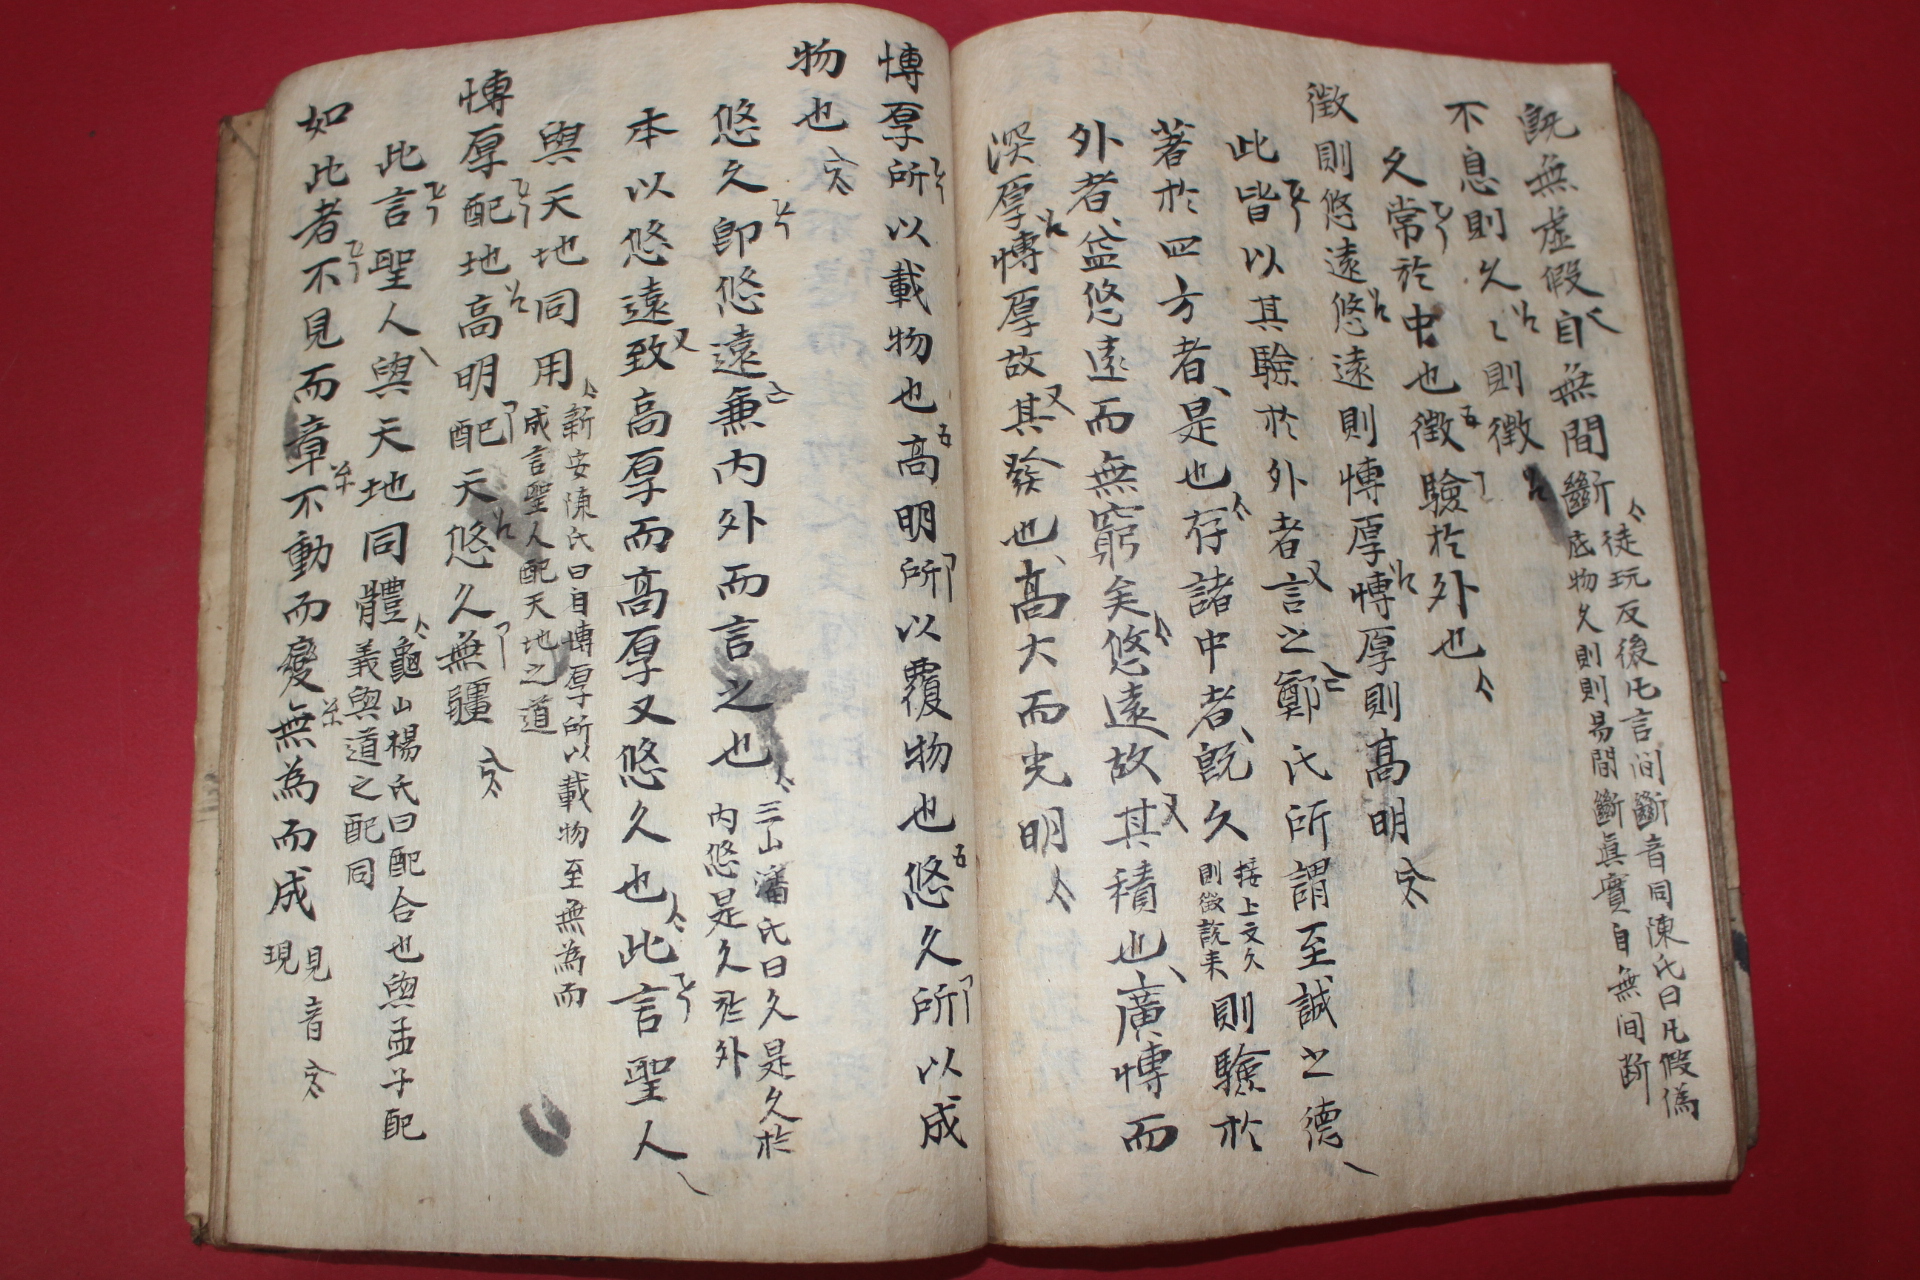 既無虛假自無間斷 徒玩反後凡言間斷音同陳氏曰凡假僞
底物久則則易間斷真實自無间断
不息則久久則徵
久常於中也徵驗於外也
徵則悠遠悠遠則博厚博厚則高明
此皆以其驗於外者言之鄭氏所謂至誠之德
著於四方者是也存諸中者既久 接上文久
則徵說来 則驗於
外者益悠遠而無窮矣悠遠故其積也廣博而
深厚博厚故其發也高大而光明
博厚所以載物也高明所以覆物也悠久所以成
物也
悠久卽悠遠兼内外而言之也 三山潘氏曰久是久於
内悠是久於外
本以悠遠致高厚而高厚又悠久也此言聖人
與天地同用 新安陳氏曰自博厚所以載物至無為而
成言聖人配天地之道
博厚配地高明配天悠久無疆
此言聖人與天地同體 龜山楊氏曰配合也與孟子配
義與道之配同
如此者不見而章不動而變無為而成 見音
現